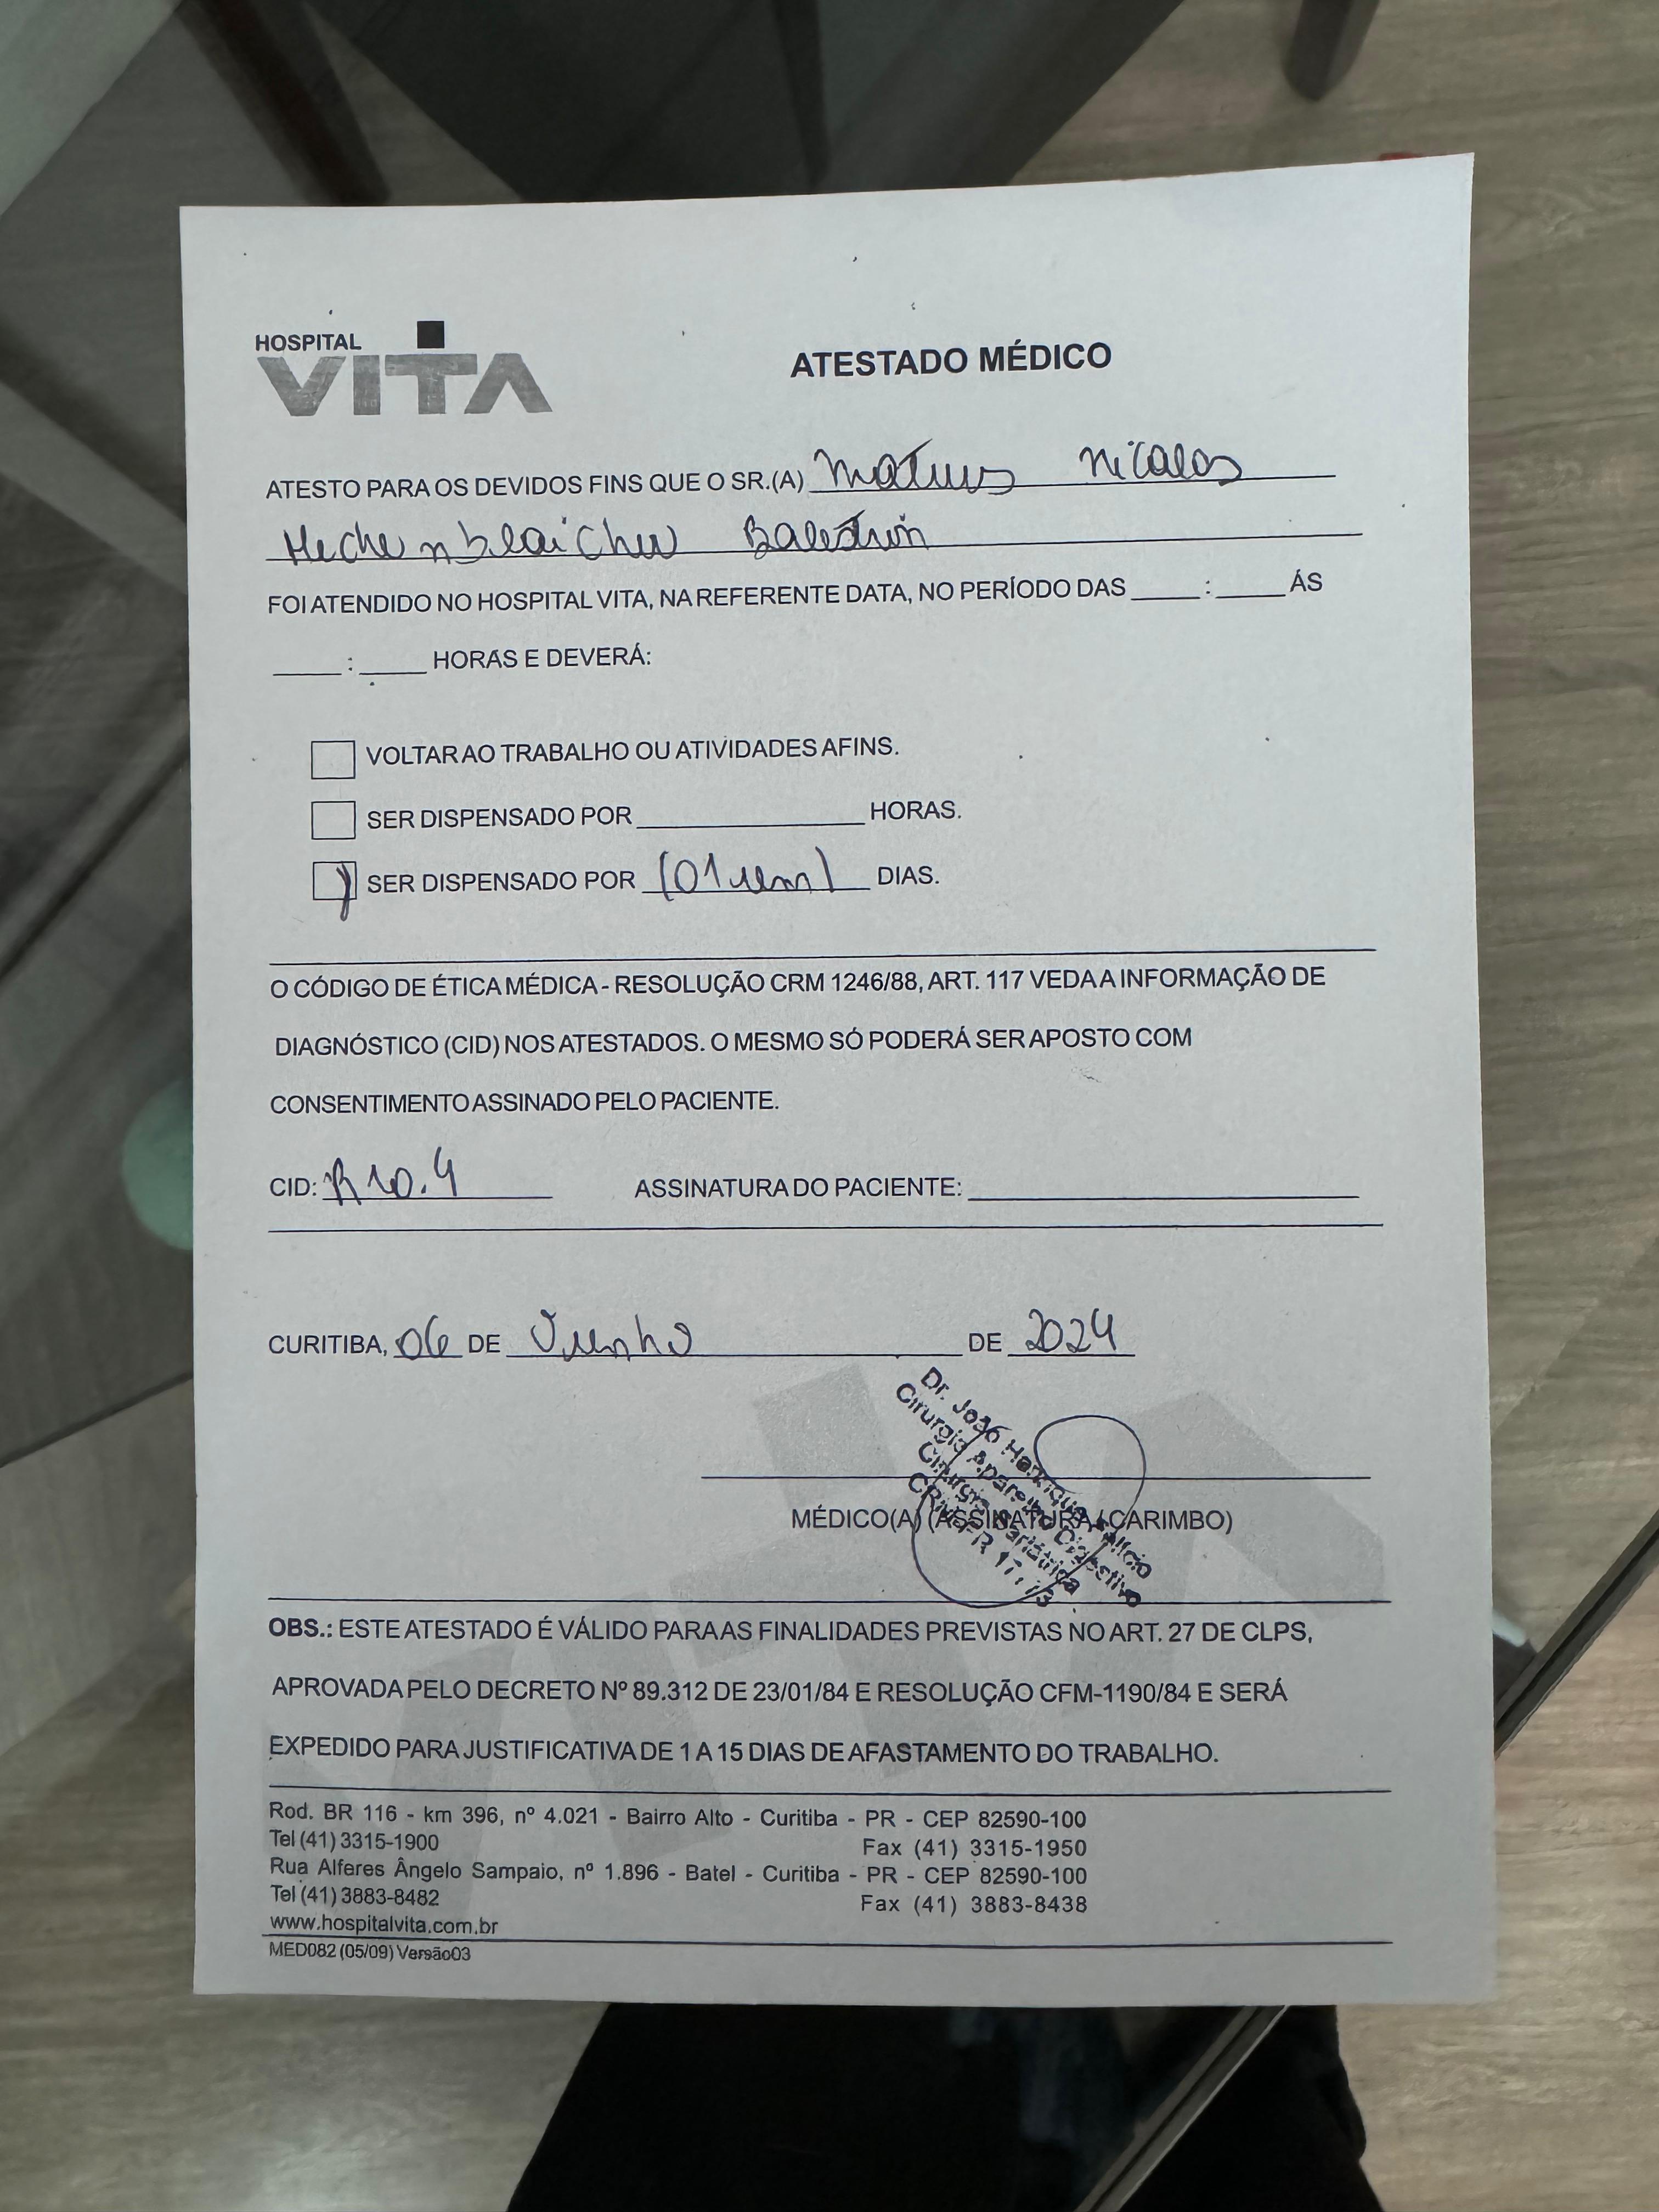 HOSPITAL
VITA
ATESTADO MÉDICO
ATESTO PARA OS DEVIDOS FINS QUE O SR.(A) Mateus Nicolas
Hechenblaicher Balestrin
FOI ATENDIDO NO HOSPITAL VITA, NA REFERENTE DATA, NO PERÍODO DAS ____:____ ÁS
____:____ HORAS E DEVERÁ:
VOLTAR AO TRABALHO OU ATIVIDADES AFINS.
SER DISPENSADO POR ____ HORAS.
SER DISPENSADO POR (01 um) DIAS.
O CÓDIGO DE ÉTICA MÉDICA - RESOLUÇÃO CRM 1246/88, ART. 117 VEDA A INFORMAÇÃO DE
DIAGNÓSTICO (CID) NOS ATESTADOS. O MESMO SÓ PODERÁ SER APOSTO COM
CONSENTIMENTO ASSINADO PELO PACIENTE.
CID: R10.4 ASSINATURA DO PACIENTE: ____
CURITIBA, 06 DE Junho DE 2024
Dr. João Henrique
Cirurgia Aparelho Digestivo
Cirurgia Bariátrica
CRM-PR
MÉDICO(A) (ASSINATURA / CARIMBO)
OBS.: ESTE ATESTADO É VÁLIDO PARA AS FINALIDADES PREVISTAS NO ART. 27 DE CLPS,
APROVADA PELO DECRETO Nº 89.312 DE 23/01/84 E RESOLUÇÃO CFM-1190/84 E SERÁ
EXPEDIDO PARA JUSTIFICATIVA DE 1 A 15 DIAS DE AFASTAMENTO DO TRABALHO.
Rod. BR 116 - km 396, nº 4.021 - Bairro Alto - Curitiba - PR - CEP 82590-100
Tel (41) 3315-1900 Fax (41) 3315-1950
Rua Alferes Ângelo Sampaio, nº 1.896 - Batel - Curitiba - PR - CEP 82590-100
Tel (41) 3883-8482 Fax (41) 3883-8438
www.hospitalvita.com.br
MED082 (05/09) Versão03